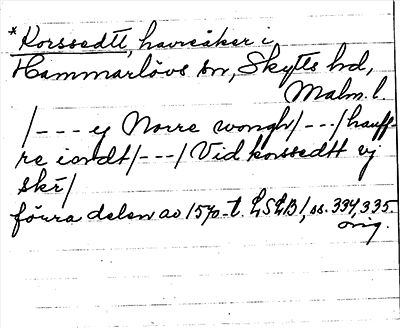 *Korssedtt, havreåker i
Hammarlövs sn, Skytts hd,
Malm. l.
/---ej Norre wongh/---/hauff-
re iordt/---/Vid korssedtt vj
skr/
förra delen av 1570-t. LSLB 1, ss. 334, 335.
orig.